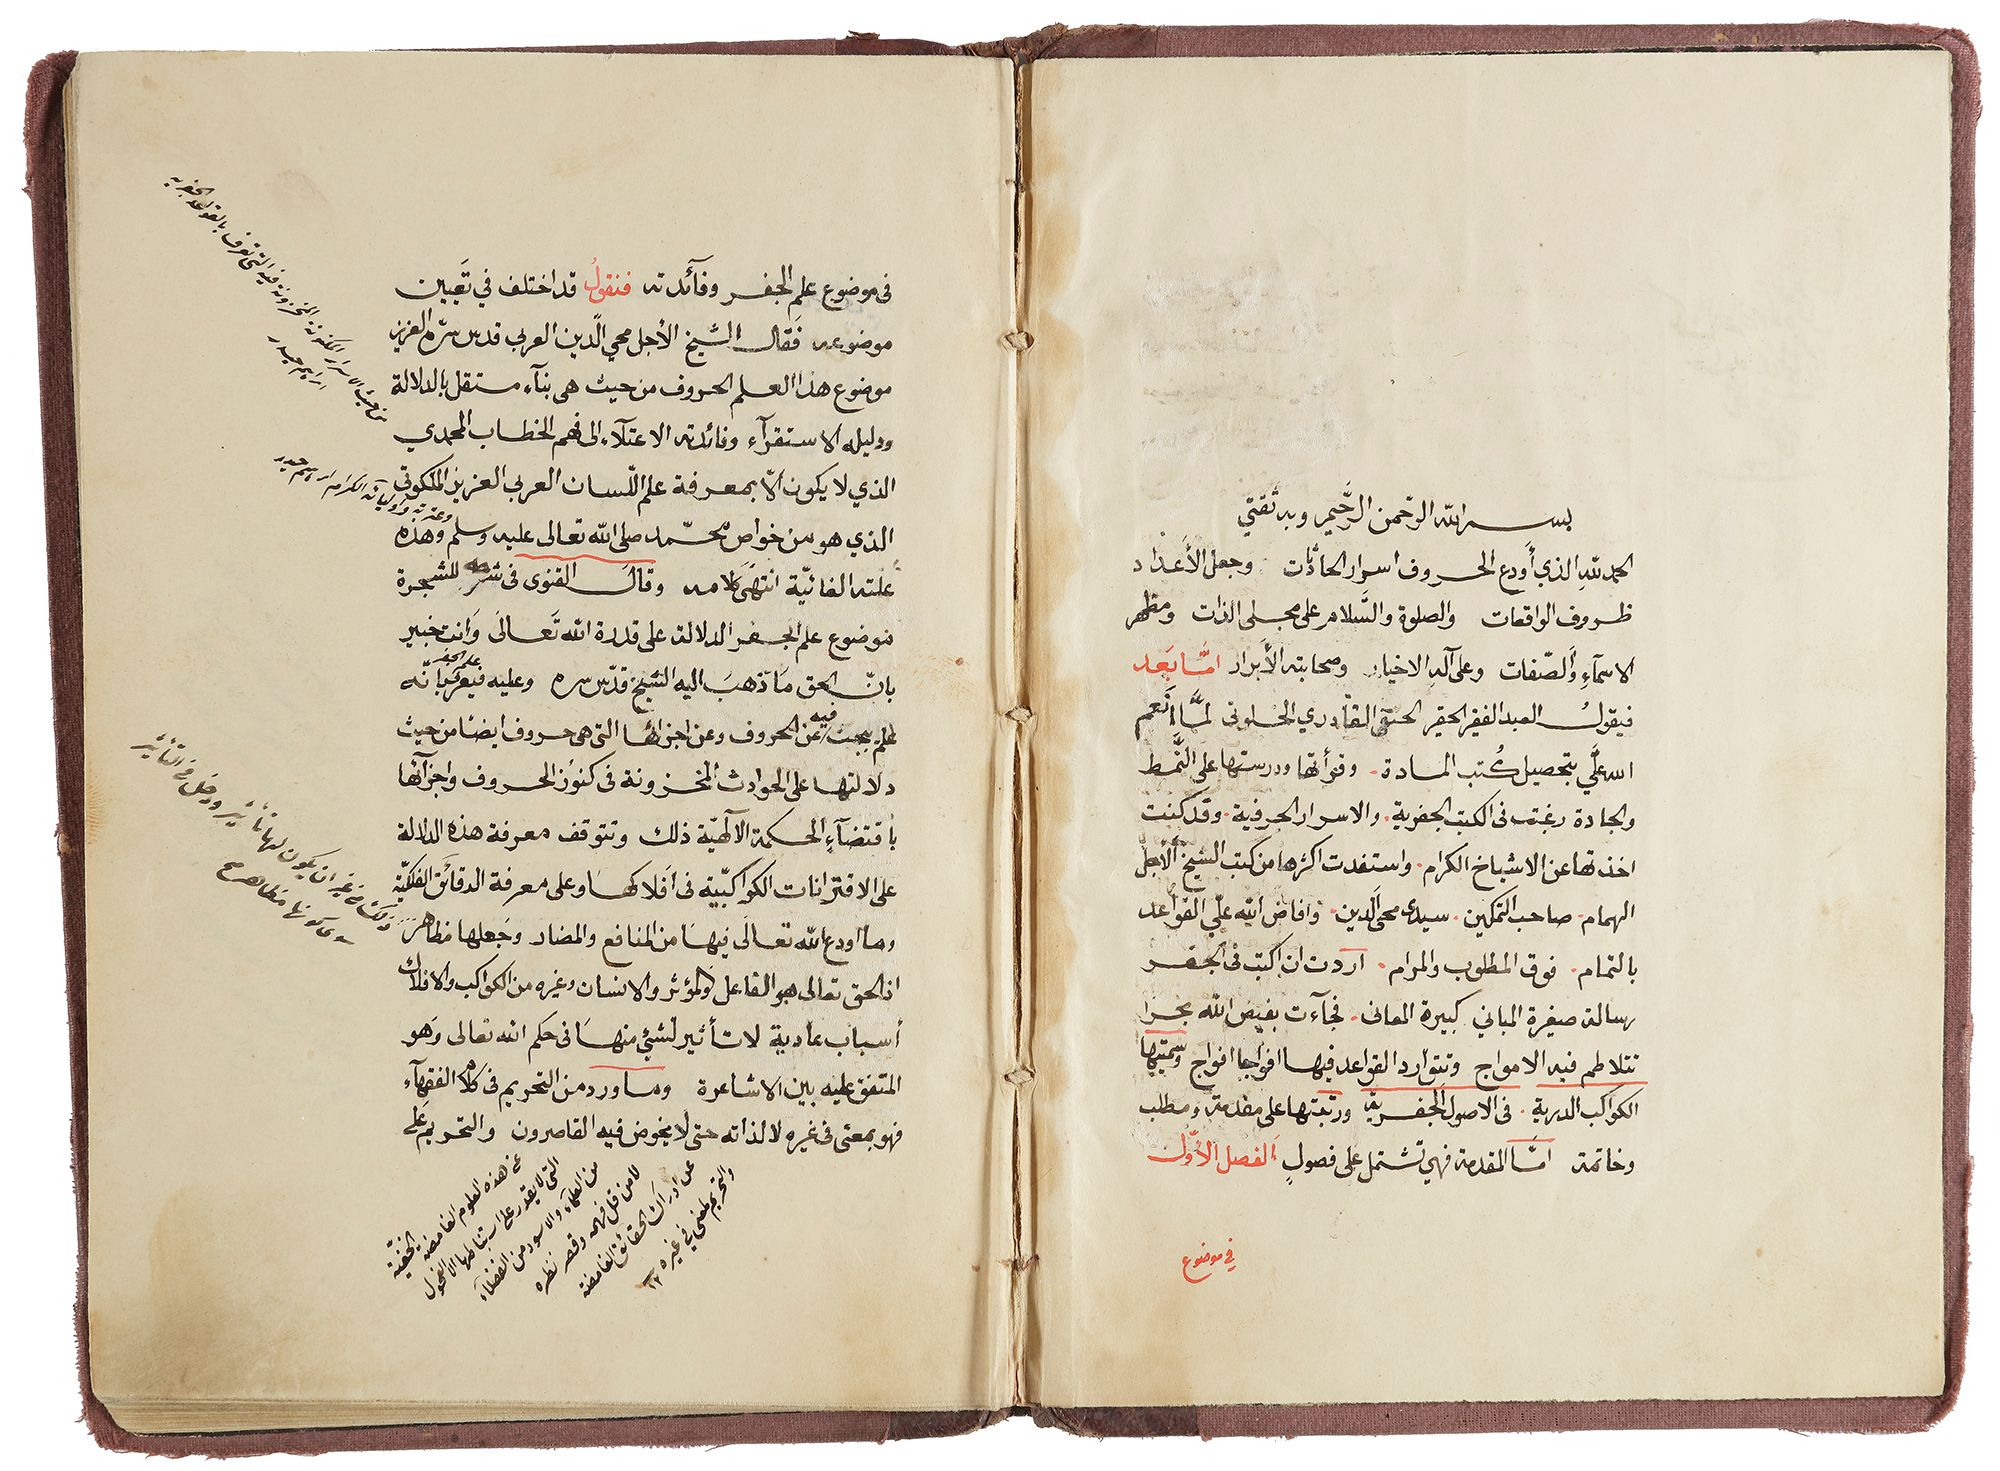 بسم الله الرحمن الرحيم وبه ثقتي
الحمد لله الذي أودع الحروف اسرار الحادثات وجعل الأعداد
ظروف الواقعات والصلوة والسلام على مجلى الذات ومظهر
الاسمآء والصفات وعلى آله الاخيار وصحابته الأبرار امّا بعد
فيقول العبد الفقير الحقير الحنفي القادري الخلوتي لمّا أنعم
الله علّي بتحصيل كُتب المادة وقرأتها ودرستها على النَّمط
والجادة رغبت في الكتب الجفرية والاسرار الحرفية وقد كنت
اخذتها عن الاشياخ الكرام واستفدت اكثرها من كتب الشيخ الأجل
الهمام صاحب التمكين سيدى محي الدين وافاض الله علّي القواعد
بالتمام فوق المطلوب والمرام اردت ان اكتب فى الجفر
رسالة صغيرة المباني كبيرة المعاني فجآءت بفيض الله بحرا
تتلاطم فيه الامواج وتتوارد القواعد فيها افواجا افواج وسميتها
الكواكب الدرية فى الاصول الجفرية ورتبتها على مقدمة ومطلب
وخاتمة امّا المقدمة فهي تشتمل على فصولٍ الفصل الأوّل
في موضوع
فى موضوع علم الجفر وفآئدته فنقولُ قد اختلف في تَعيين
موضوعه فقال الشيخ الأجل محي الدين العربي قدس سرّه العزيز
موضوع هذا العلم الحروف من حيث هى بنآء مستقل بالدلالة
ودليله الاستقرآء وفائدته الاعتلاء الى فهم الخطاب المحمدي
الذي لا يكون الّا بمعرفة علم اللسان العربي العزيز الملكوتى
الذي هو من خواص محمّد صلى الله تعالى عليه وسلم وهذه
علته الغائيّة انتهى كلامه وقال القنوى فى شرحه للشجرة
موضوع علم الجفر الدلالة على قدرة الله تَعالى وَانت خبير
بانّ الحق مَا ذهبَ اليه الشيخ قدّس سره وعليه فيعرف علم الجفر بانّه
علم يبحث فيه عن الحروف وعن اجزائها التى هى حروف ايضا من حيث
دلالتها على الحوادث المخزونة فى كنوز الحروف واجزآئها
باقتضآءِ الحكمة الآلهيّة ذلك وتتوقف معرفة هذه الدلالة
على الاقترانات الكواكبّية فى افلاكها وعلى معرفة الدقائق الفلكيّة
وما اودع الله تعالى فيها من المنافع والمضار وجَعلها مظاهر
ان الحق تعالى هو الفاعل والمؤثر والانسان وغيره من الكواكب والافلاك
أسباب عادية لا تأثير لشيئ منها فى حكم الله تعالى وَهو
المتفق عليه بين الاشاعرة وما ورد من التحريم فى كلام الفقهآء
فهو بمعنى فى غيره لا لذاته حتى لا يخوض فيه القاصرون والتحريم على
من هذه العلوم الغامضة الخفيّة
التى لا يقدر على استنباطها الا الفحول
من العلمآء والاسود من الفضلآء
لا من قل فهمه وقصر نظره
عن ادراك الحقائق الغامضة
والتحريم لمعنى في غيره ١٢